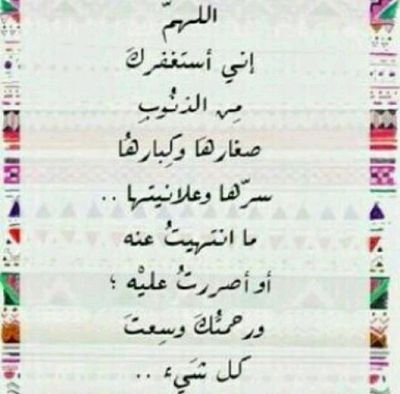 اللهمّ
إني أستغفركَ
مِن الذنُوبِ
صغارهَا وكِبارهُا
سرّها وعلانيتها ..
ما انتهيتُ عنه
أو أصررتُ عليْه ؛
ورحمتُكَ وسِعتَ
كل شَيء ..